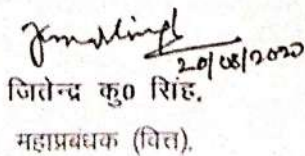 20/08/2020
जितेन्द्र कु० सिंह,
महाप्रबंधक (वित्त),